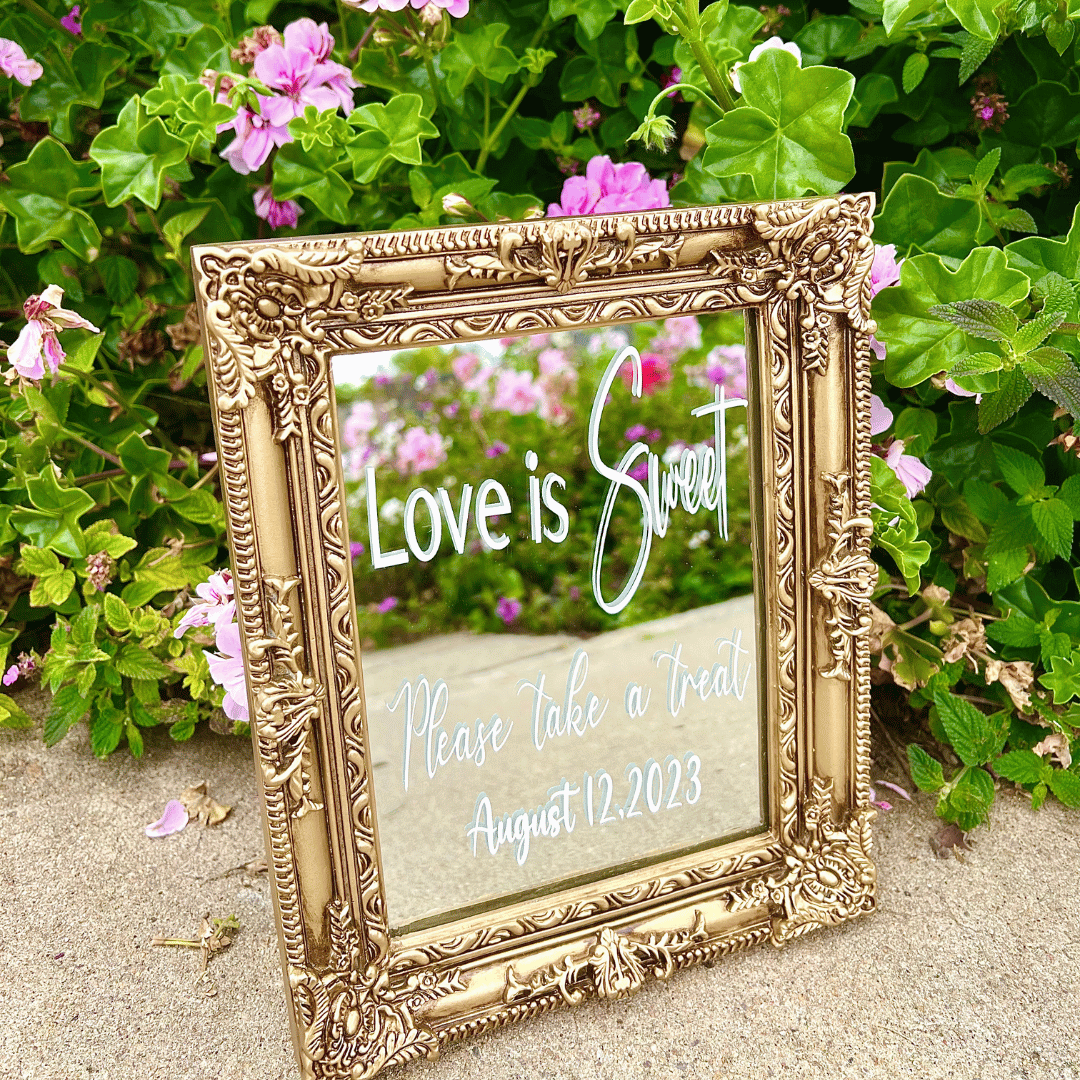 Love is Sweet
Please take a treat
August 12.2023